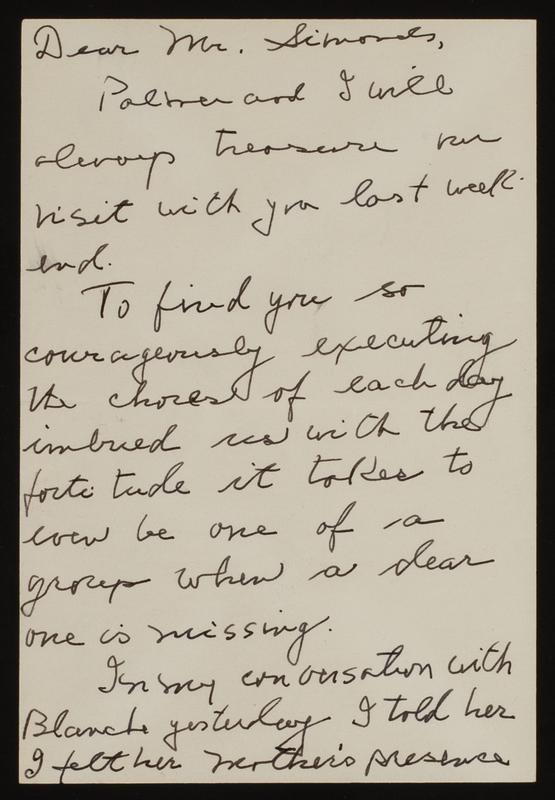 Dear Mr. Simonds,
Palmer and I will
always treasure our
visit with you last week-
end.
To find you so
courageously executing
the chores of each day
imbued us with the
fortitude it takes to
even be one of a
group when a dear
one is missing.
In my conversation with
Blanche yesterday I told her
I felt her mother's presence